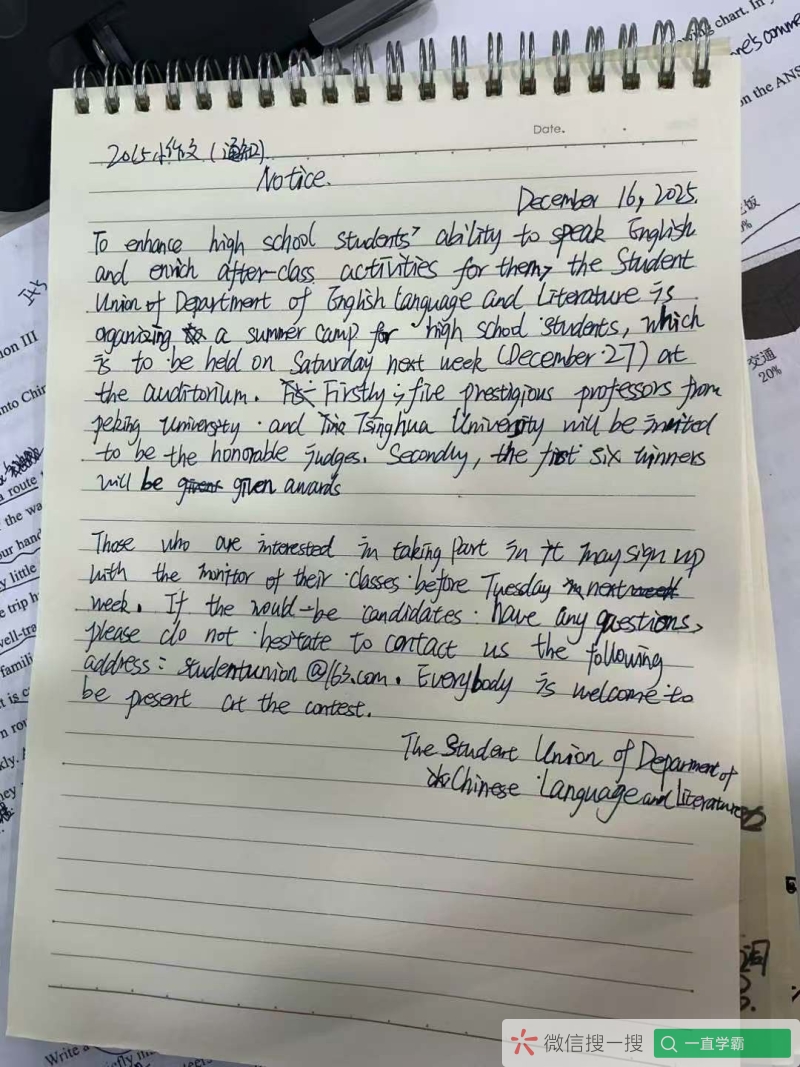 Date.
2015小作文(通知)
Notice.
December 16, 2025.
To enhance high school students' ability to speak English
and enrich after-class activities for them, the Student
Union of Department of English Language and Literature is
organizing a summer camp for high school students, which
is to be held on Saturday next week (December 27) at
the auditorium. Firstly, five prestigious professors from
peking University and Tsinghua University will be invited
to be the honorable judges. Secondly, the first six winners
will be given awards
Those who are interested in taking part in it may sign up
with the monitor of their classes before Tuesday next
week. If the would-be candidates have any questions,
please do not hesitate to contact us the following
address: studentunion@163.com. Everybody is welcome to
be present at the contest.
The Student Union of Deparment of
Chinese Language and Literature
ing chart. In
on the ANS
饭
交通
20%
ion III
nto Chin
a route
the wa
our hand
y little
trip h
well-tra
famili
t is c
n rou
kly. A
hey
词
Write a
微信搜一搜
一直学霸